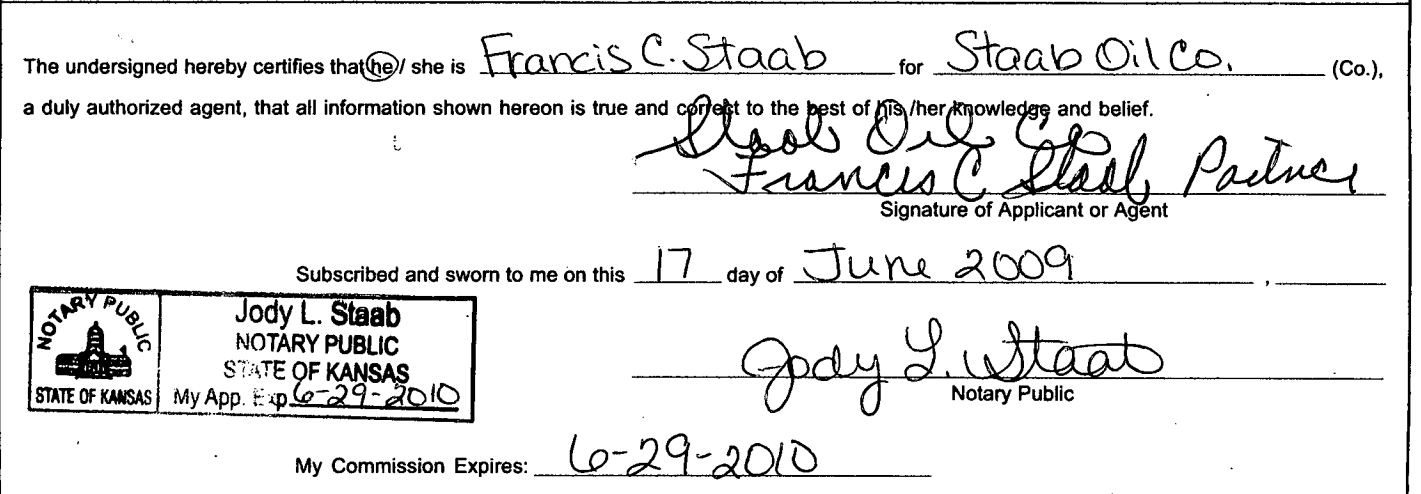 The undersigned hereby certifies that he / she is Francis C. Staab for Staab Oil Co. (Co.),
a duly authorized agent, that all information shown hereon is true and correct to the best of his /her knowledge and belief.
Staab Oil Co
Francis C Staab Partner
Signature of Applicant or Agent
Subscribed and sworn to me on this 17 day of June 2009 ,
NOTARY PUBLIC
STATE OF KANSAS
Jody L. Staab
NOTARY PUBLIC
STATE OF KANSAS
My App. Exp. 6-29-2010
Jody L. Staab
Notary Public
My Commission Expires: 6-29-2010